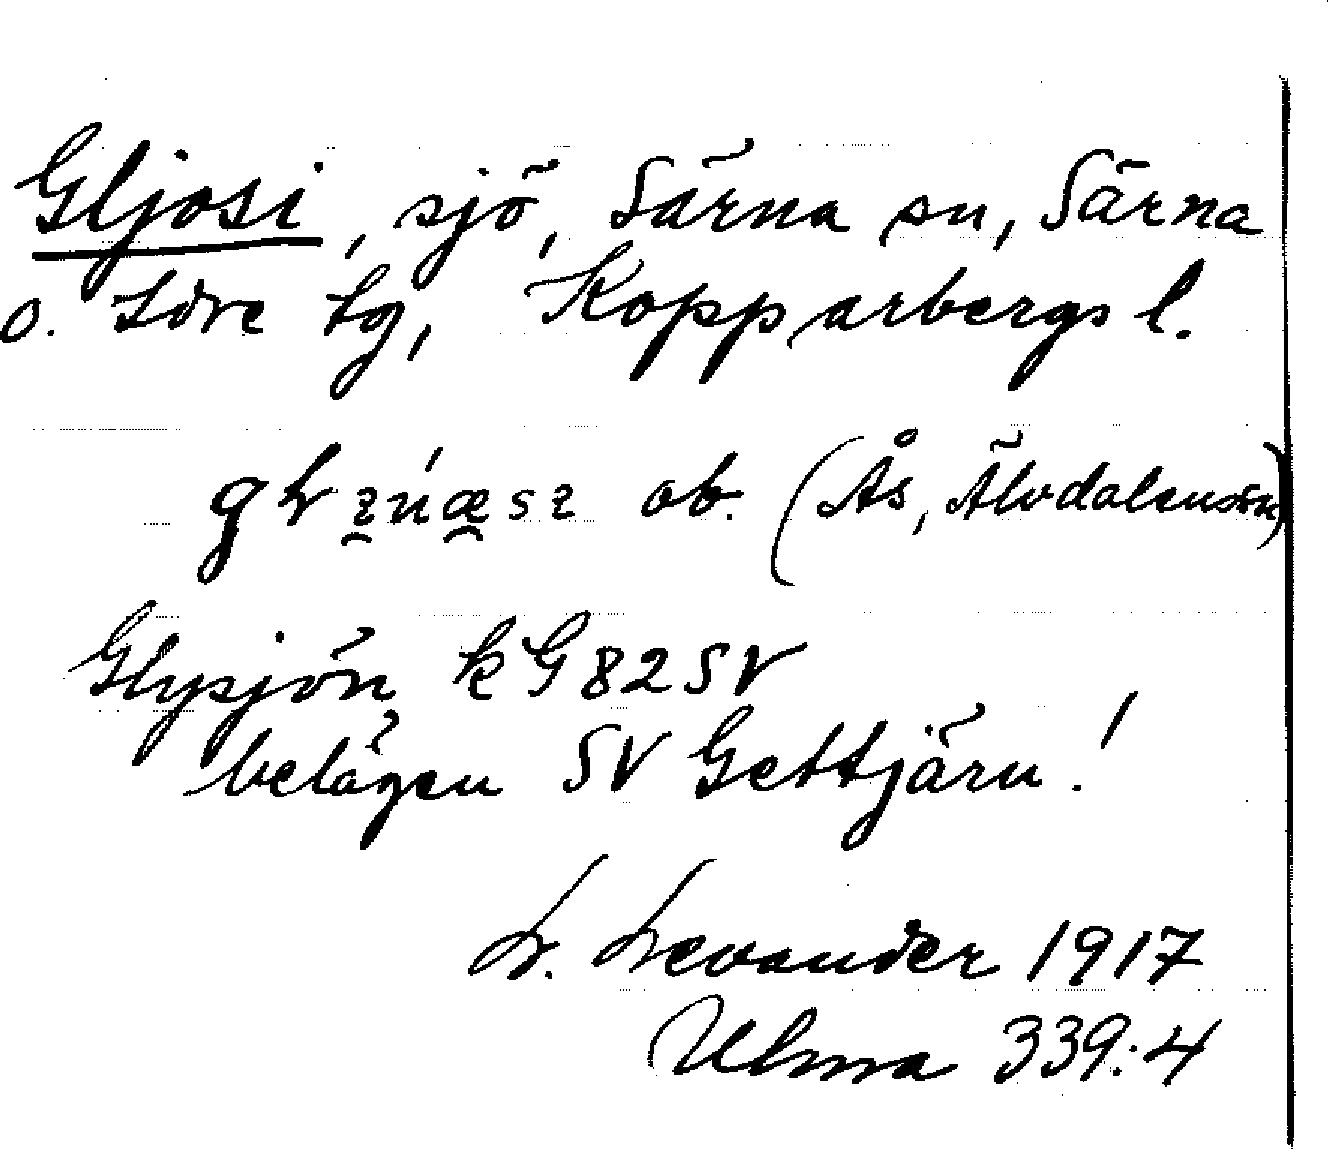 Gljosi, sjö, Särna sn, Särna
o. Idre tg, Kopparbergs l.
ob. (Ås, Älvdalenssn)
Glysjön kG82SV
belägen SV Gettjärn!
L. Levander 1917
Ulma 339:4